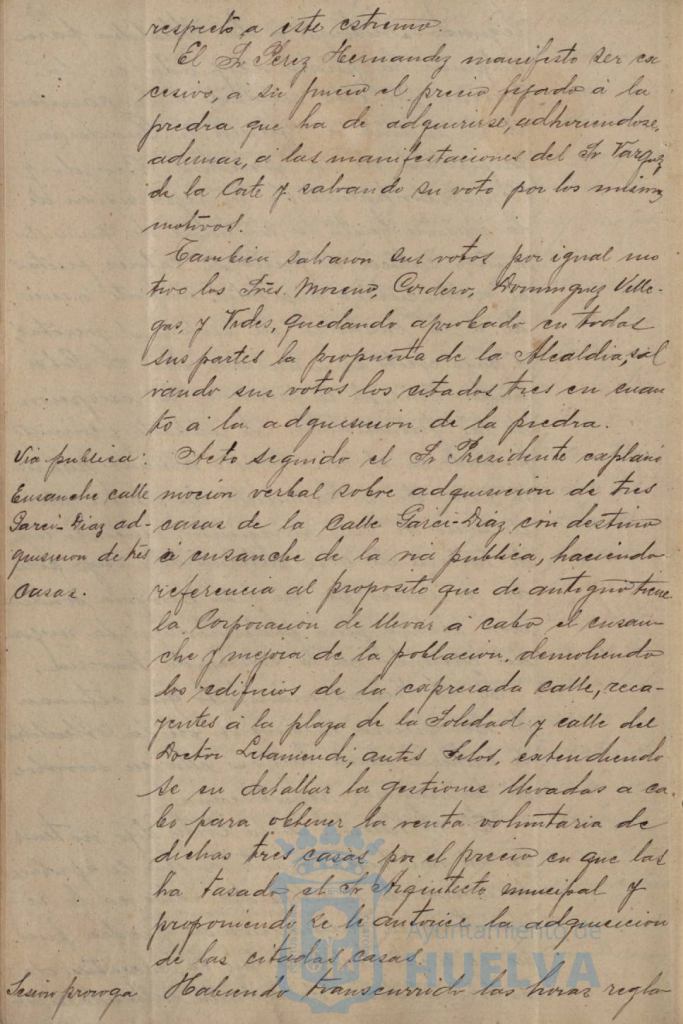 respecto a este estremo.
El Sr Perez Hernandez manifesto ser ex
cesivo, a su juicio el precio fijado á la
piedra que ha de adquirirse, adhiriendose,
ademas, á las manifestaciones del Sr Vazquez
de la Corte y salvando su voto por los mismos
motivos.
Tambien salvaron sus votos por igual mo
tivo los Sres. Moreno, Cordero, Dominguez Ville-
gas, y Vides, quedando aprobado en todas
sus partes la propuesta de la Alcaldia, sal
vando sus votos los citados tres en cuan
to á la adquisicion de la piedra.
Via publica:
Ensanche calle
Garci-Diaz ad-
quisicion de tres
casas.
Acto seguido el Sr Presidente esplanó
mocion verbal sobre adquisicion de tres
casas de la Calle Garci-Diaz con destino
á ensanche de la via publica, haciendo
referencia al proposito que de antiguo tiene
la Corporacion de llevar á cabo el ensan-
che y mejora de la poblacion, demoliendo
los edificios de la expresada calle, reca-
yentes á la plaza de la Soledad y calle del
Doctor Letamendi, antes Silos, extendiendo
se en detallar la gestiones llevadas a ca-
bo para obtener la venta voluntaria de
dichas tres casas por el precio en que las
ha tasado el Sr Arquitecto municipal y
proponiendo se le autorice la adquisicion
de las citadas casas.
Sesion proroga
Habiendo transcurrido las horas regla
Ayuntamiento de
HUELVA